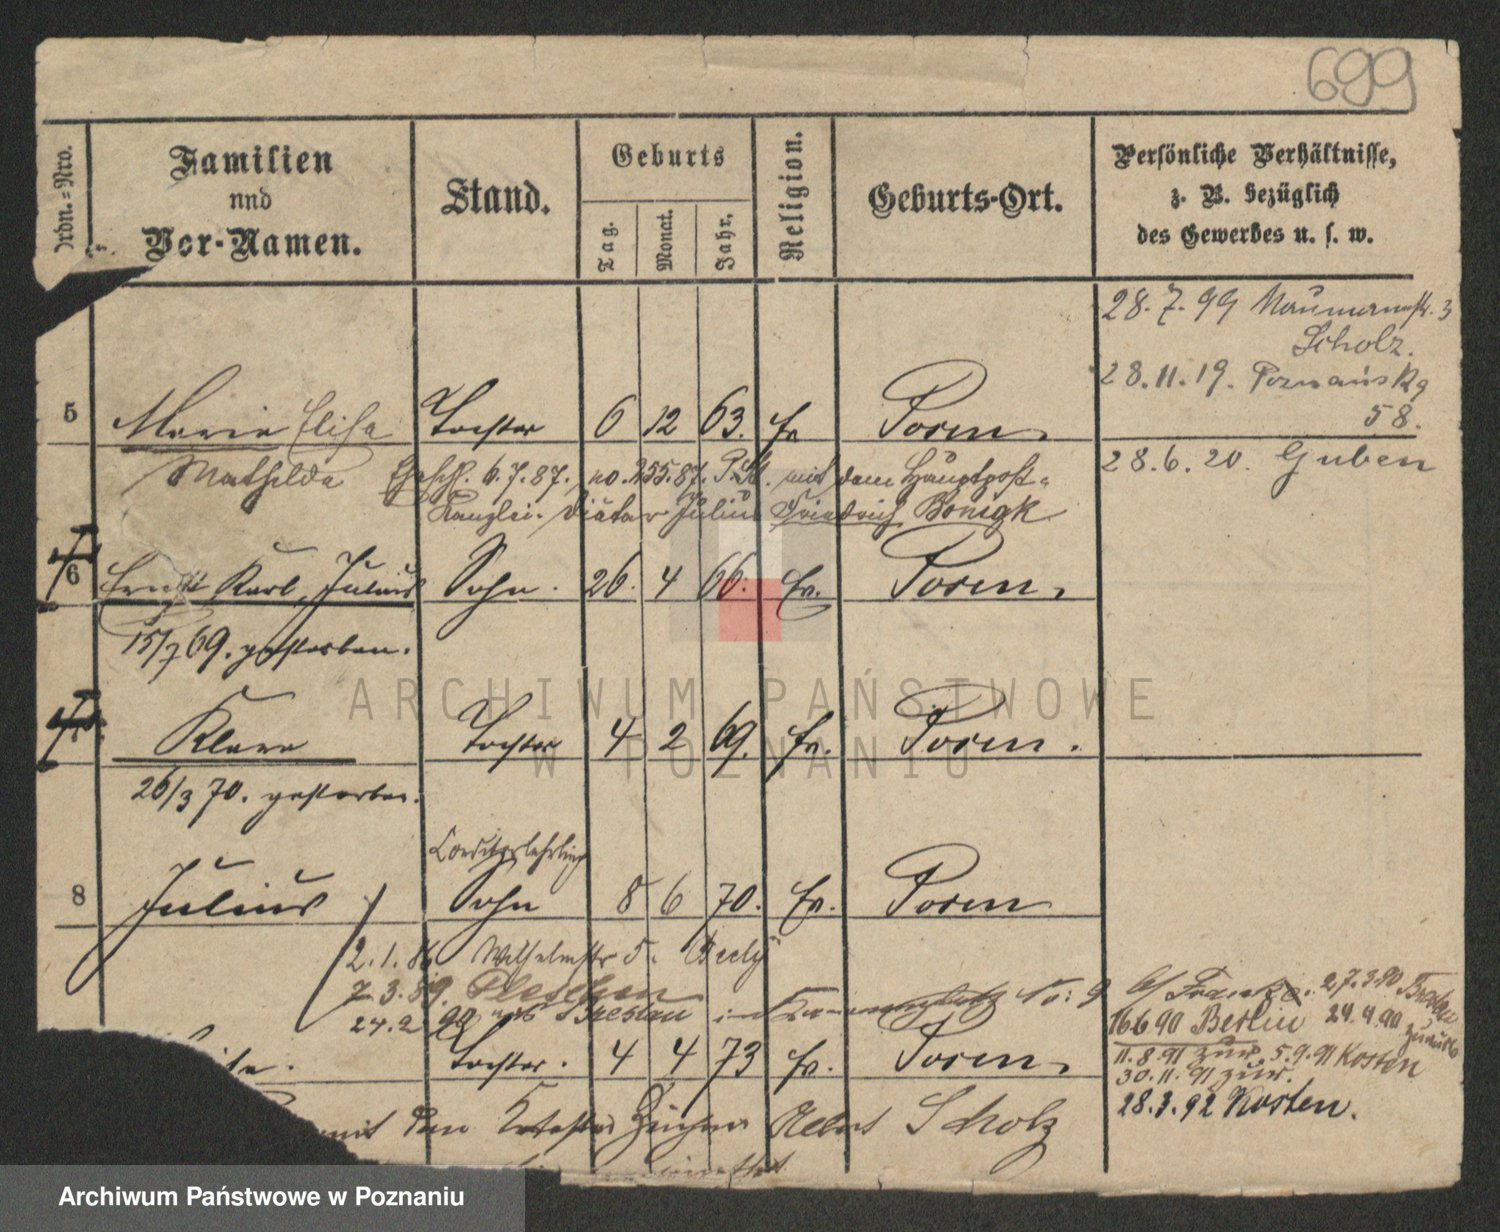 699
Ordn.-Nro.
Familien
und
Vor-Namen.
Stand.
Geburts
Tag.
Monat.
Jahr.
Religion.
Geburts-Ort.
Persönliche Verhältnisse,
z. B. bezüglich
des Gewerbes u. s. w.
28.7.99 Naumannstr. 3
Scholz.
28.11.19. Poznańska
58.
5 Marie Elisa Tochter 6 12 63. ev Posen.
Mathilde Eheschl. 6.7.87. no. 255.87. P. St. mit dem Hauptpost-
28.6.20. Guben
Kanzlei-Diätar Julius Friedrich Bonigk
6 Ernst Karl, Julius Sohn. 26. 4 66. ev. Posen.
15/7 69. gestorben.
Klara Tochter 4 2 69. ev. Posen.
26/3 70. gestorben.
Conditorlehrling
8 Julius Sohn 8 6 70. ev. Posen
2.1.86 Wilhelmstr 5.
7.3.89. Pleschen
24.2.90 Breslau in No: 9
b/ Franke. 27.3.90 Breslau
16.6.90 Berlin 24.4.90 zurück
11.8.91 zur. 5.9.91 Kosten
30.11.91 zur.
28.3.92 Kosten.
Tochter. 4 4 73 ev. Posen.
mit dem Kataster Zeichner Albert Scholz
ARCHIWUM PAŃSTWOWE
W POZNANIU
Archiwum Państwowe w Poznaniu